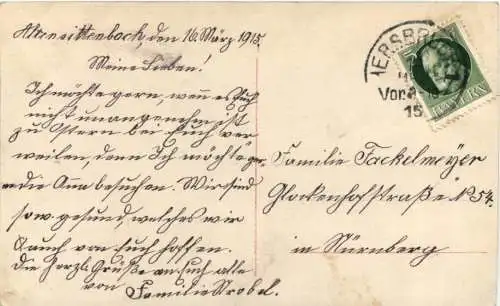 Altensittenbach, den 16. März 1915.
Meine Lieben!
Ich möchte gern, wenn es Euch
nicht unangenehm ist
zu Ostern bei Euch ver
weilen, denn Ich möchte ge
die Anna besuchen. Wir sind
sow. gesund, welches wir
auch von Euch hoffen.
Die herzl. Grüße an Euch alle
von Familie Strobel.
HERSBR
Vor. 8-
15
BAYERN
Familie Fackelmeyer
Glockenhofstraße No 54.
in Nürnberg